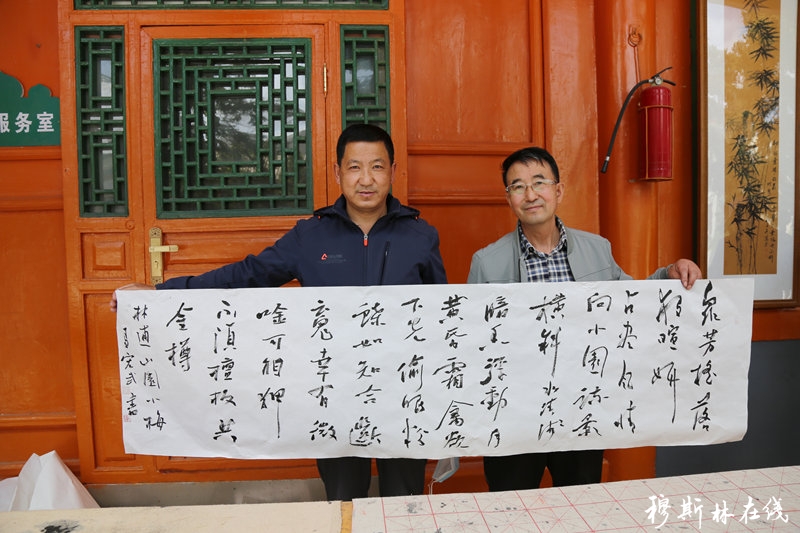 服务室
衆芳摇落
独暄妍
占尽风情
向小園疏影
横斜水清浅
暗香浮動月
黄昏霜禽欲
下先偷眼粉
蝶如知合斷
魂幸有微
吟可相狎
不須檀板共
金樽
林逋山園小梅
宏武書
穆斯林在线